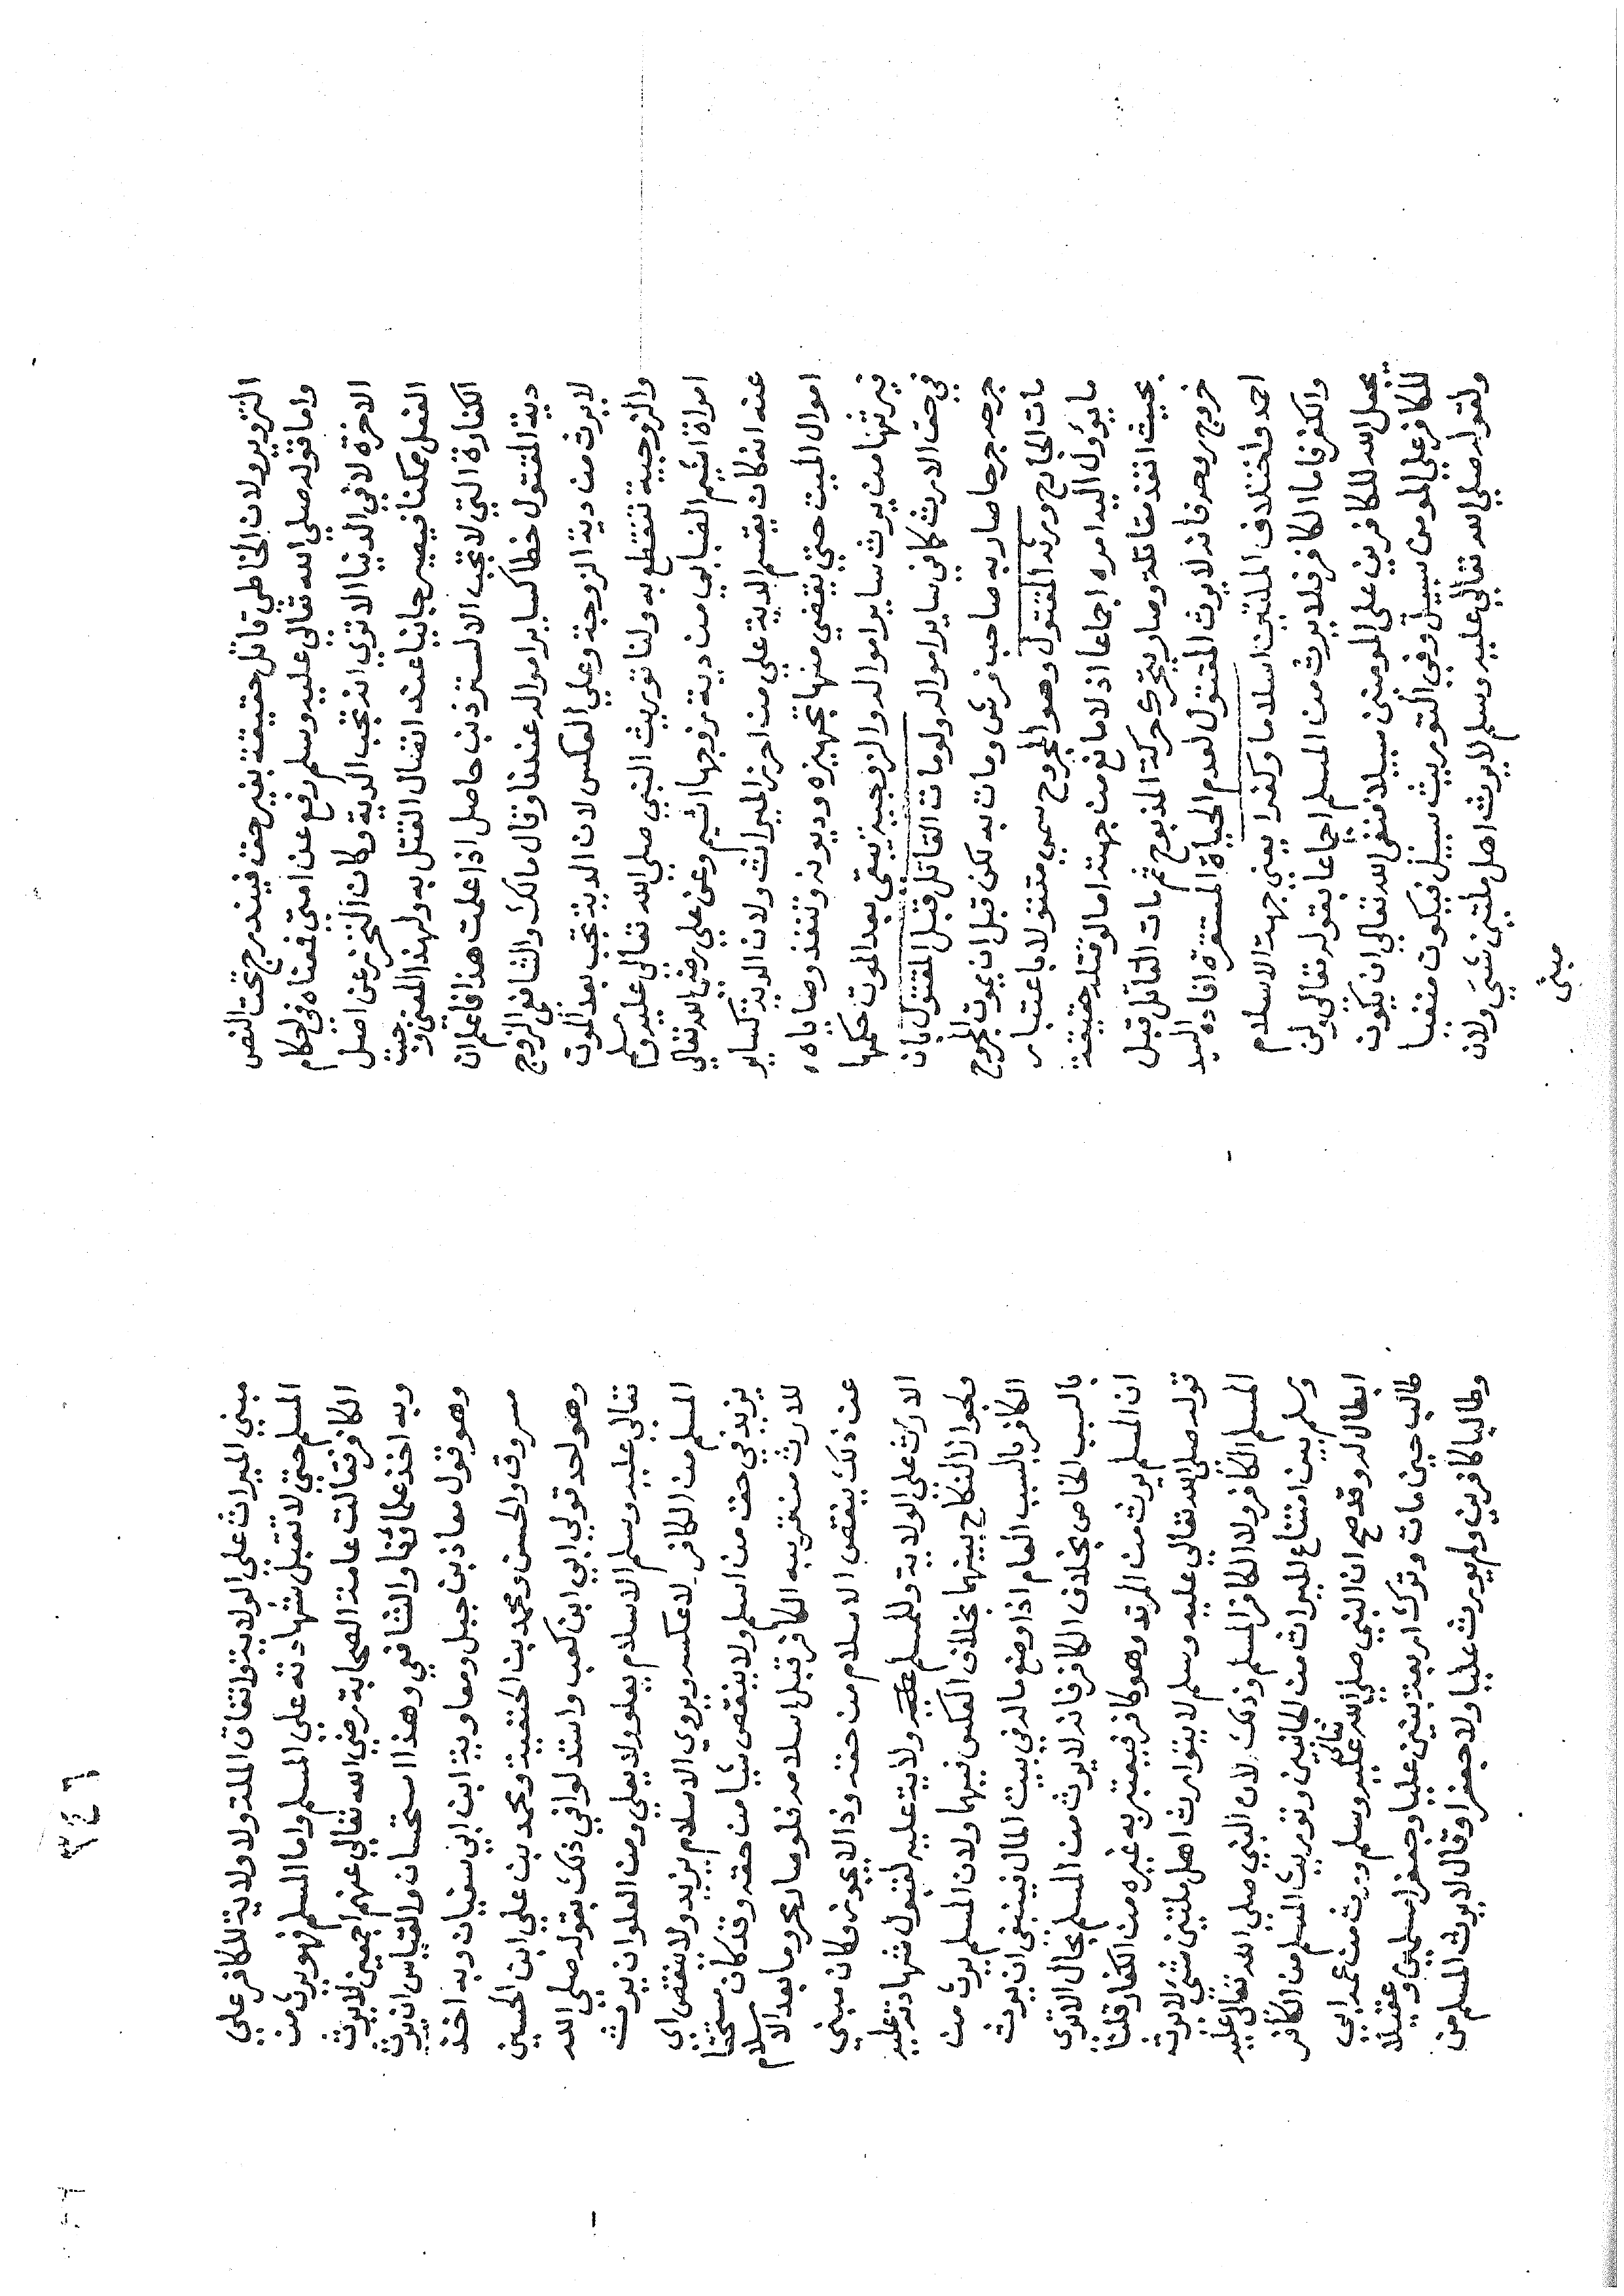 التزوير ولان الخاطي قاتل حقيقة بغير حق فيندرج تحت النص
واما قوله صلي الله تعالي عليه وسلم رفع عن امتي فمعناه في احكام
الاخرة لا في الدنيا الا تري انه تجب الدية وكان التحرز عن اصل
الفعل ممكنا فيصير جانيا عند اتصال القتل به ولهذا المعني وجبت
الكفارة التي لا تجب الا لستر ذنب حاصل اذا علمت هذا فاعلم ان
دية المقتول خطا كساير امواله عندنا وقال مالك والشافعي الزوج
لا يرث من دية الزوجة وعلي العكس لان الدية تجب بعد الموت
والزوجية تنقطع به ولنا توريث النبي صلي الله تعالي عليه وسلم
امراة اشيم الضبابي من دية زوجها اشيم وعن علي رضي الله تعالي
عنه انه كان يقسم الدية علي من احرز الميراث ولان الدية كساير
اموال الميت حتي يقضي منها تجهيزه وديونه وتنفذ وصاياه
فيرثها من يرث ساير امواله والزوجية تبقي بعد الموت حكما
في حق الارث كما في ساير امواله ولو مات القاتل قبل المقتول بان
جرحه جرحا صار به صاحب فرش ومات به لكن قبل ان يموت المجروح
مات الجارح ورثه المقتول وهو المجروح سمي مقتولا باعتبار
ما يؤول اليه امره اجماعا اذ لا مانع من جهته اما لو قتله حقيقة
بحيث انفذ مقاتله وصار يتحرك حركة المذبوح ثم مات القاتل قبل
خروج روحه فانه لا يرث المقتول لعدم الحياة المستقرة افاده السيد
احمد واختلاف الملتين اسلاما وكفرا يعني جهة الاسلام
والكفر فاما الكافر فلا يرث من المسلم اجماعا بقوله تعالي ولن
يجعل الله للكافرين على المومنين سبيلا فنفي الله تعالي ان يكون
للكافر علي المومن سبيل وفي التوريث سبيل فيكون منفيا
ولقوله صلي الله تعالي عليه وسلم لا يرث اهل ملتين شي ولان
مبنى
٣٤٦
مبني الميراث علي الولاية واتفاق الملة ولا ولاية للكافر علي
المسلم حتي لا تقبل شهادته علي المسلم واما المسلم فهو يرث من
الكافر فقالت عامة الصحابة رضي الله تعالي عنهم اجمعين لا يرث
وبه اخذ علمائنا والشافعي وهذا استحسان والقياس ان يرث
وهو قول معاذ بن جبل ومعاوية ابن ابي سفيان وبه اخذ
مسروق والحسن ومحمد بن الحنفية ومحمد بن علي ابن الحسين
وهو احد قولي ابي ابن كعب واستدلوا في ذلك بقوله صلي الله
تعالي عليه وسلم الاسلام يعلو ولا يعلي ومن العلو ان يرث
المسلم من الكافر لا عكسه ويروي الاسلام يزيد ولا ينقص اي
يزيد في حق من اسلم ولا ينقص شيا من حقه وقد كان مستحقا
للارث من قريبه الكافر قبل اسلامه فلو صار محروما بعد الاسلام
عن ذلك ينقص الاسلام من حقه وذا لا يجوز وكان مبني
الارث على الولاية وللمسلم ولاية عليه لقبول شهادته عليه
ولجواز النكاح بينهما بخلاف العكس فيهما ولان المسلم يرث من
الكافر بالسبب العام اذا وضع ماله في بيت المال فينبغي ان يرث
بالسبب الخاص بخلاف الكافر فانه لا يرث من المسلم بحال الا تري
ان المسلم يرث من المرتد وهو كافر فيعتبر به غيره من الكفار قلنا
قوله صلي الله تعالي عليه وسلم لا يتوارث اهل ملتين شي لا يرث
المسلم الكافر ولا الكافر المسلم وذلك لان النبي صلي الله تعالي عليه
وسلم بين امتناع الميراث من الجانبين وتوريث المسلم من الكافر
ابطال له وقد صح ان النبي صلي الله تعالي عليه وسلم ورث من عمه ابي
طالب حين مات وترك اربعة بنين عليا وجعفرا مسلمين وعقيلا
وطالبا كافرين ولم يورث عليا ولا جعفرا وقال لا يرث المسلم من